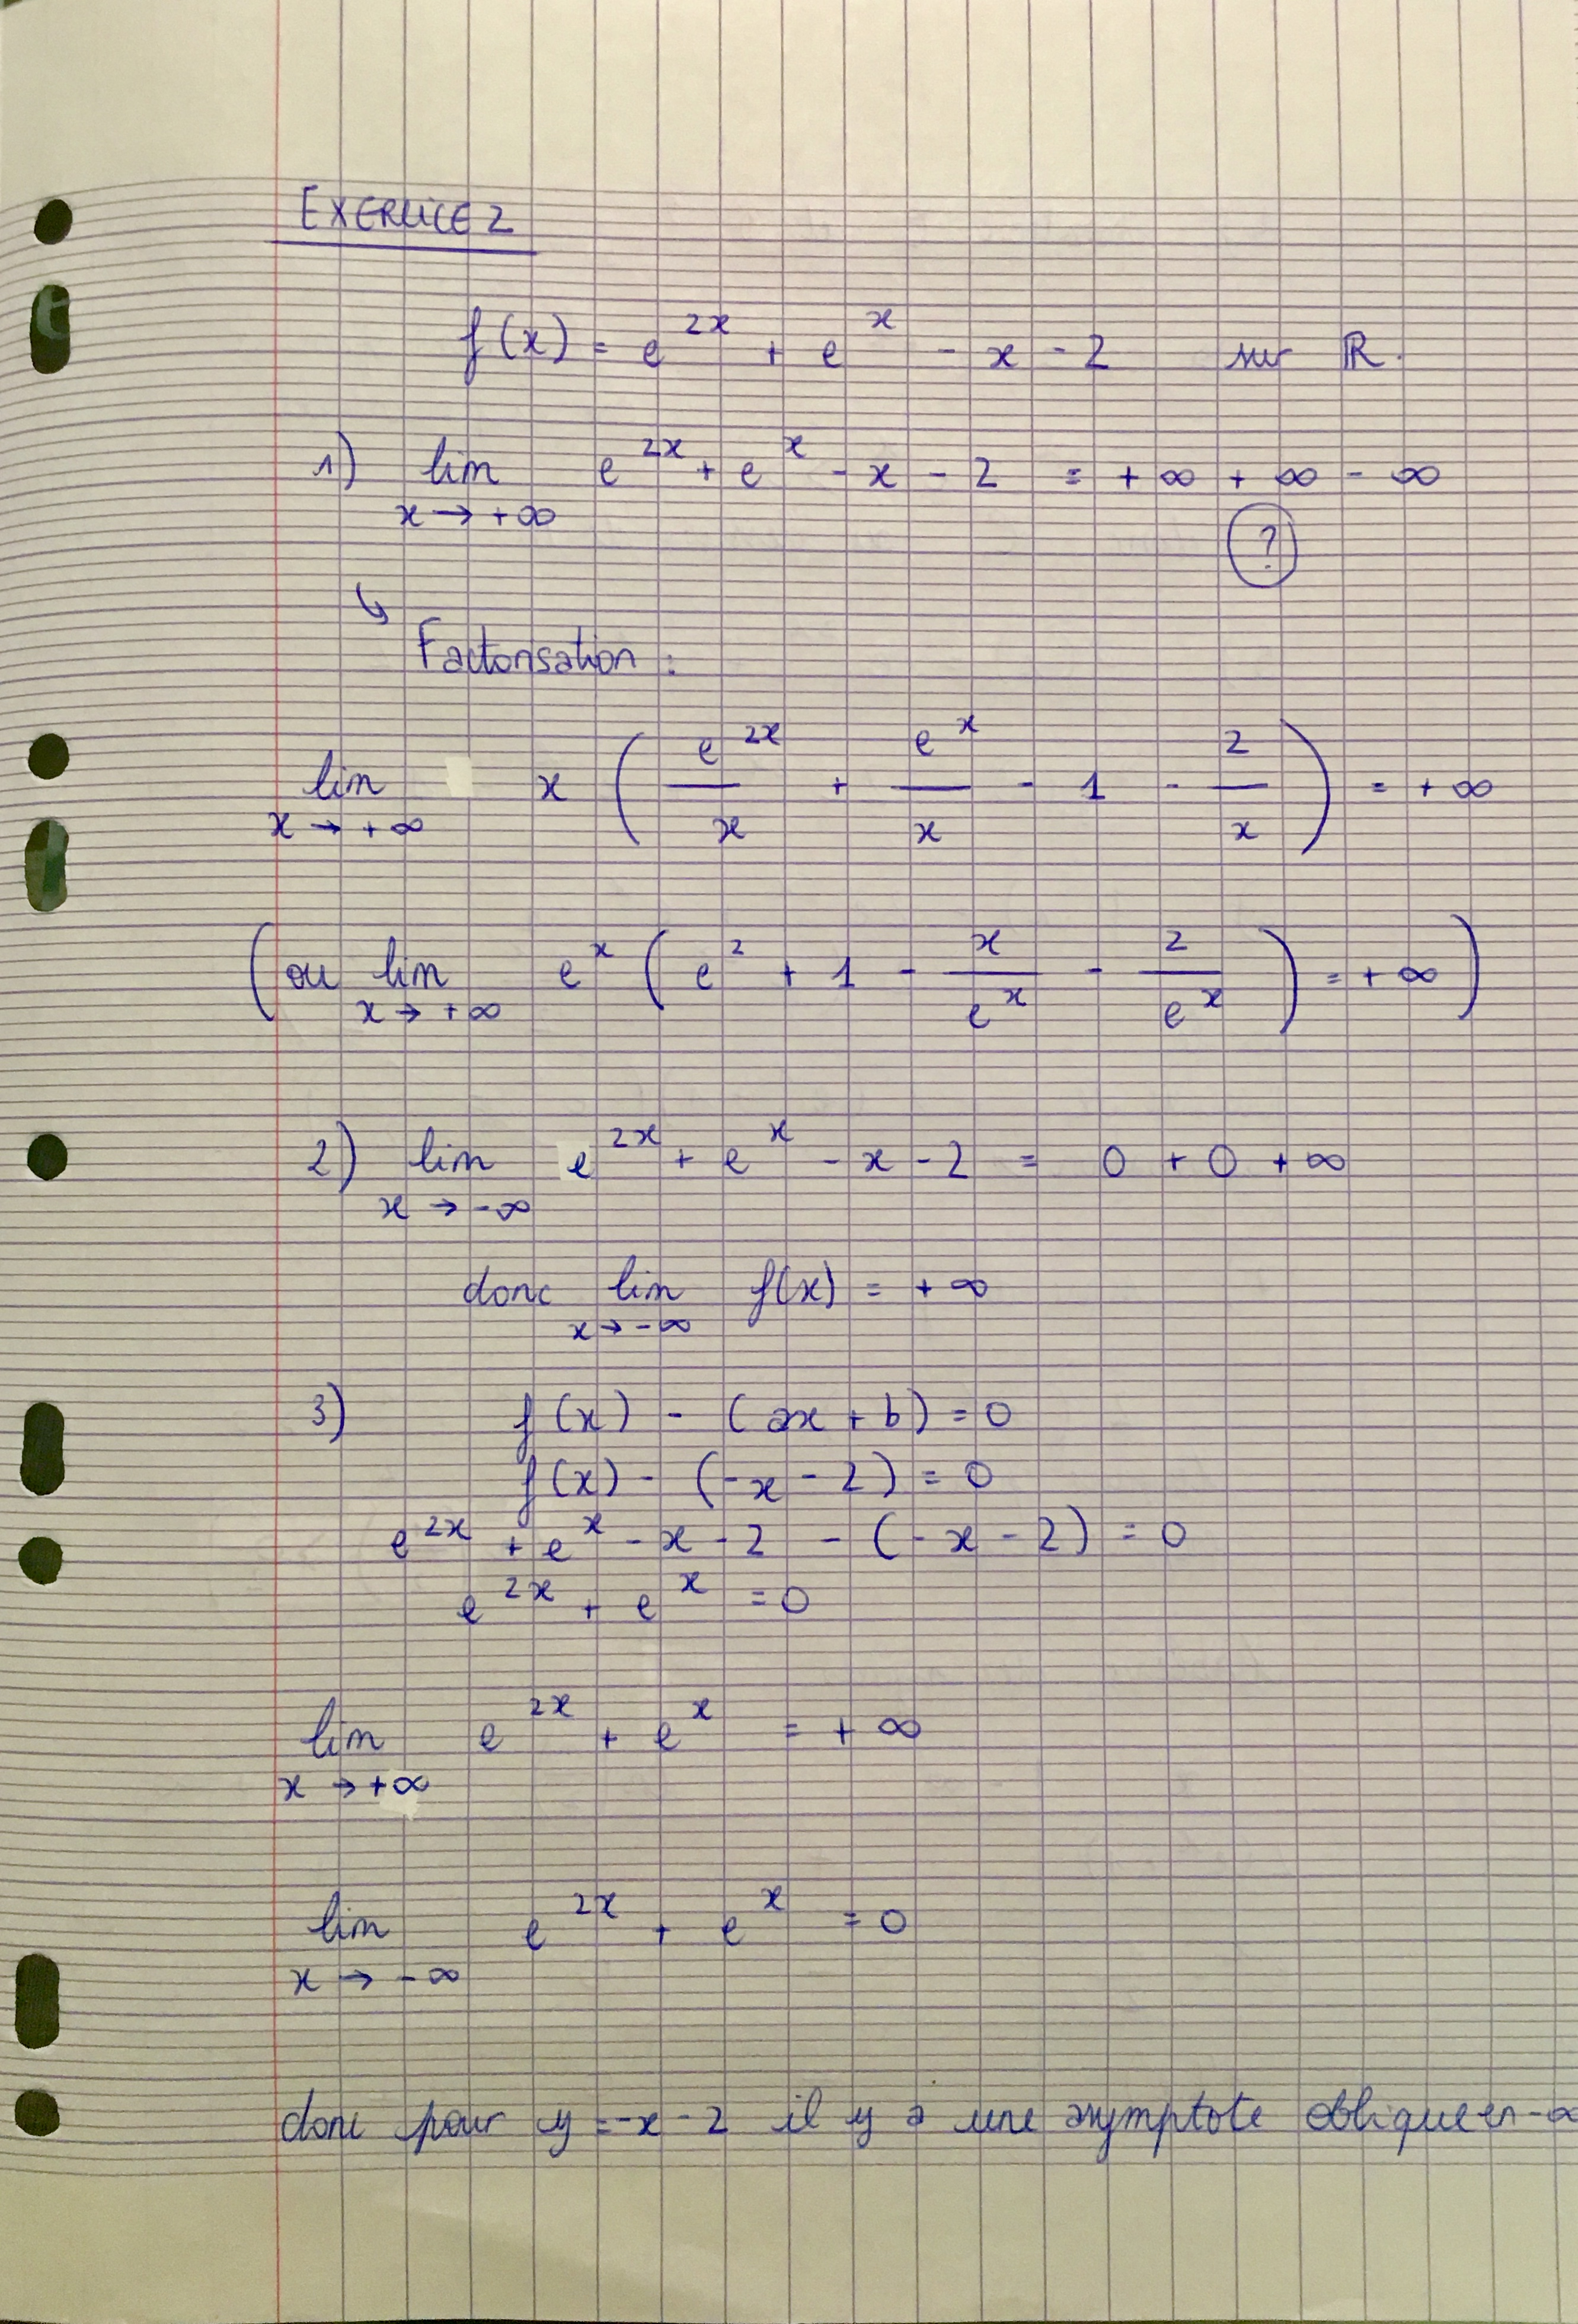 EXERCICE 2
f(x) = e^{2x} + e^{x} - x - 2 sur ℝ.
1) lim_{x → +∞} e^{2x} + e^{x} - x - 2 = +∞ + ∞ - ∞
?
↳ Factorisation :
lim_{x → +∞} x ( e^{2x}/x + e^{x}/x - 1 - 2/x ) = +∞
( ou lim_{x → +∞} e^{x} ( e^{2} + 1 - x/e^{x} - 2/e^{x} ) = +∞ )
2) lim_{x → -∞} e^{2x} + e^{x} - x - 2 = 0 + 0 + ∞
donc lim_{x → -∞} f(x) = +∞
3) f(x) - (ax + b) = 0
f(x) - (-x - 2) = 0
e^{2x} + e^{x} - x - 2 - (-x - 2) = 0
e^{2x} + e^{x} = 0
lim_{x → +∞} e^{2x} + e^{x} = +∞
lim_{x → -∞} e^{2x} + e^{x} = 0
donc pour y = -x - 2 il y a une asymptote oblique en -∞